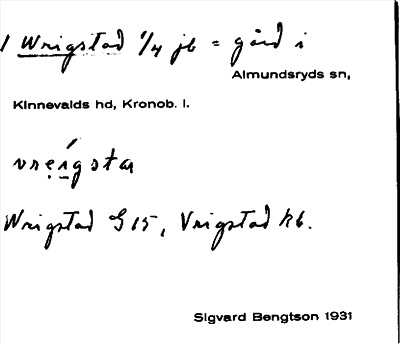 1 Wrigstad 1/4 jb = gård i
Almundsryds sn,
Kinnevalds hd, Kronob. l.
vrẹ́ngsta
Wrigstad G 15, Vrigstad kb.
Sigvard Bengtson 1931